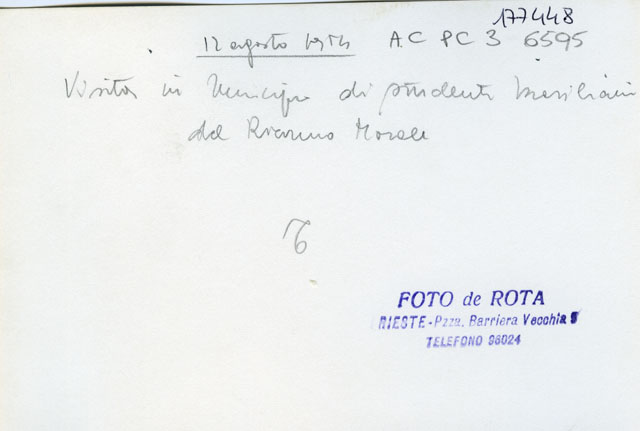 177448
12 agosto 1954 A.C PC 3 6595
Visita in Municipio di studenti brasiliani
del Riarmo Morale
6
FOTO de ROTA
RIESTE-Pzza. Barriera Vecchia 9
TELEFONO 96024